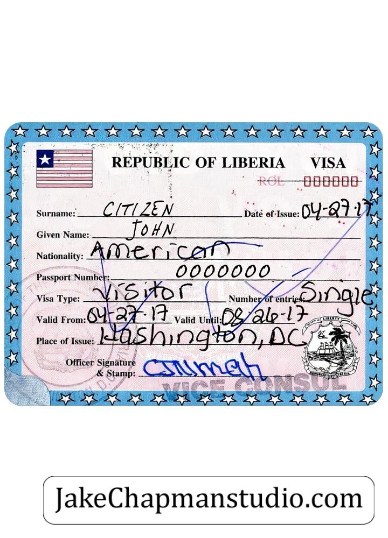 REPUBLIC OF LIBERIA VISA
ROL 000000
Surname: CITIZEN Date of Issue: 04-27-17
Given Name: JOHN
Nationality: American
Passport Number: 0000000
Visa Type: Visitor Number of entries: Single
Valid From: 04-27-17 Valid Until: 08-26-17
Place of Issue: Washington, DC
Officer Signature
& Stamp:
VICE CONSUL
JakeChapmanstudio.com